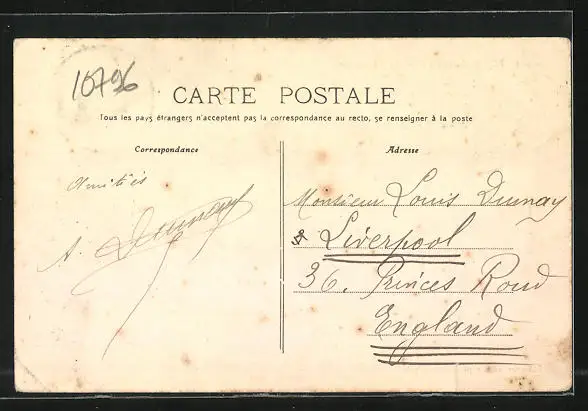 10796
CARTE POSTALE
Tous les pays étrangers n'acceptent pas la correspondance au recto, se renseigner à la poste
Correspondance
Adresse
Amitiés
A. Dumay
Monsieur Louis Dumay
Liverpool
36. Princes Road
England